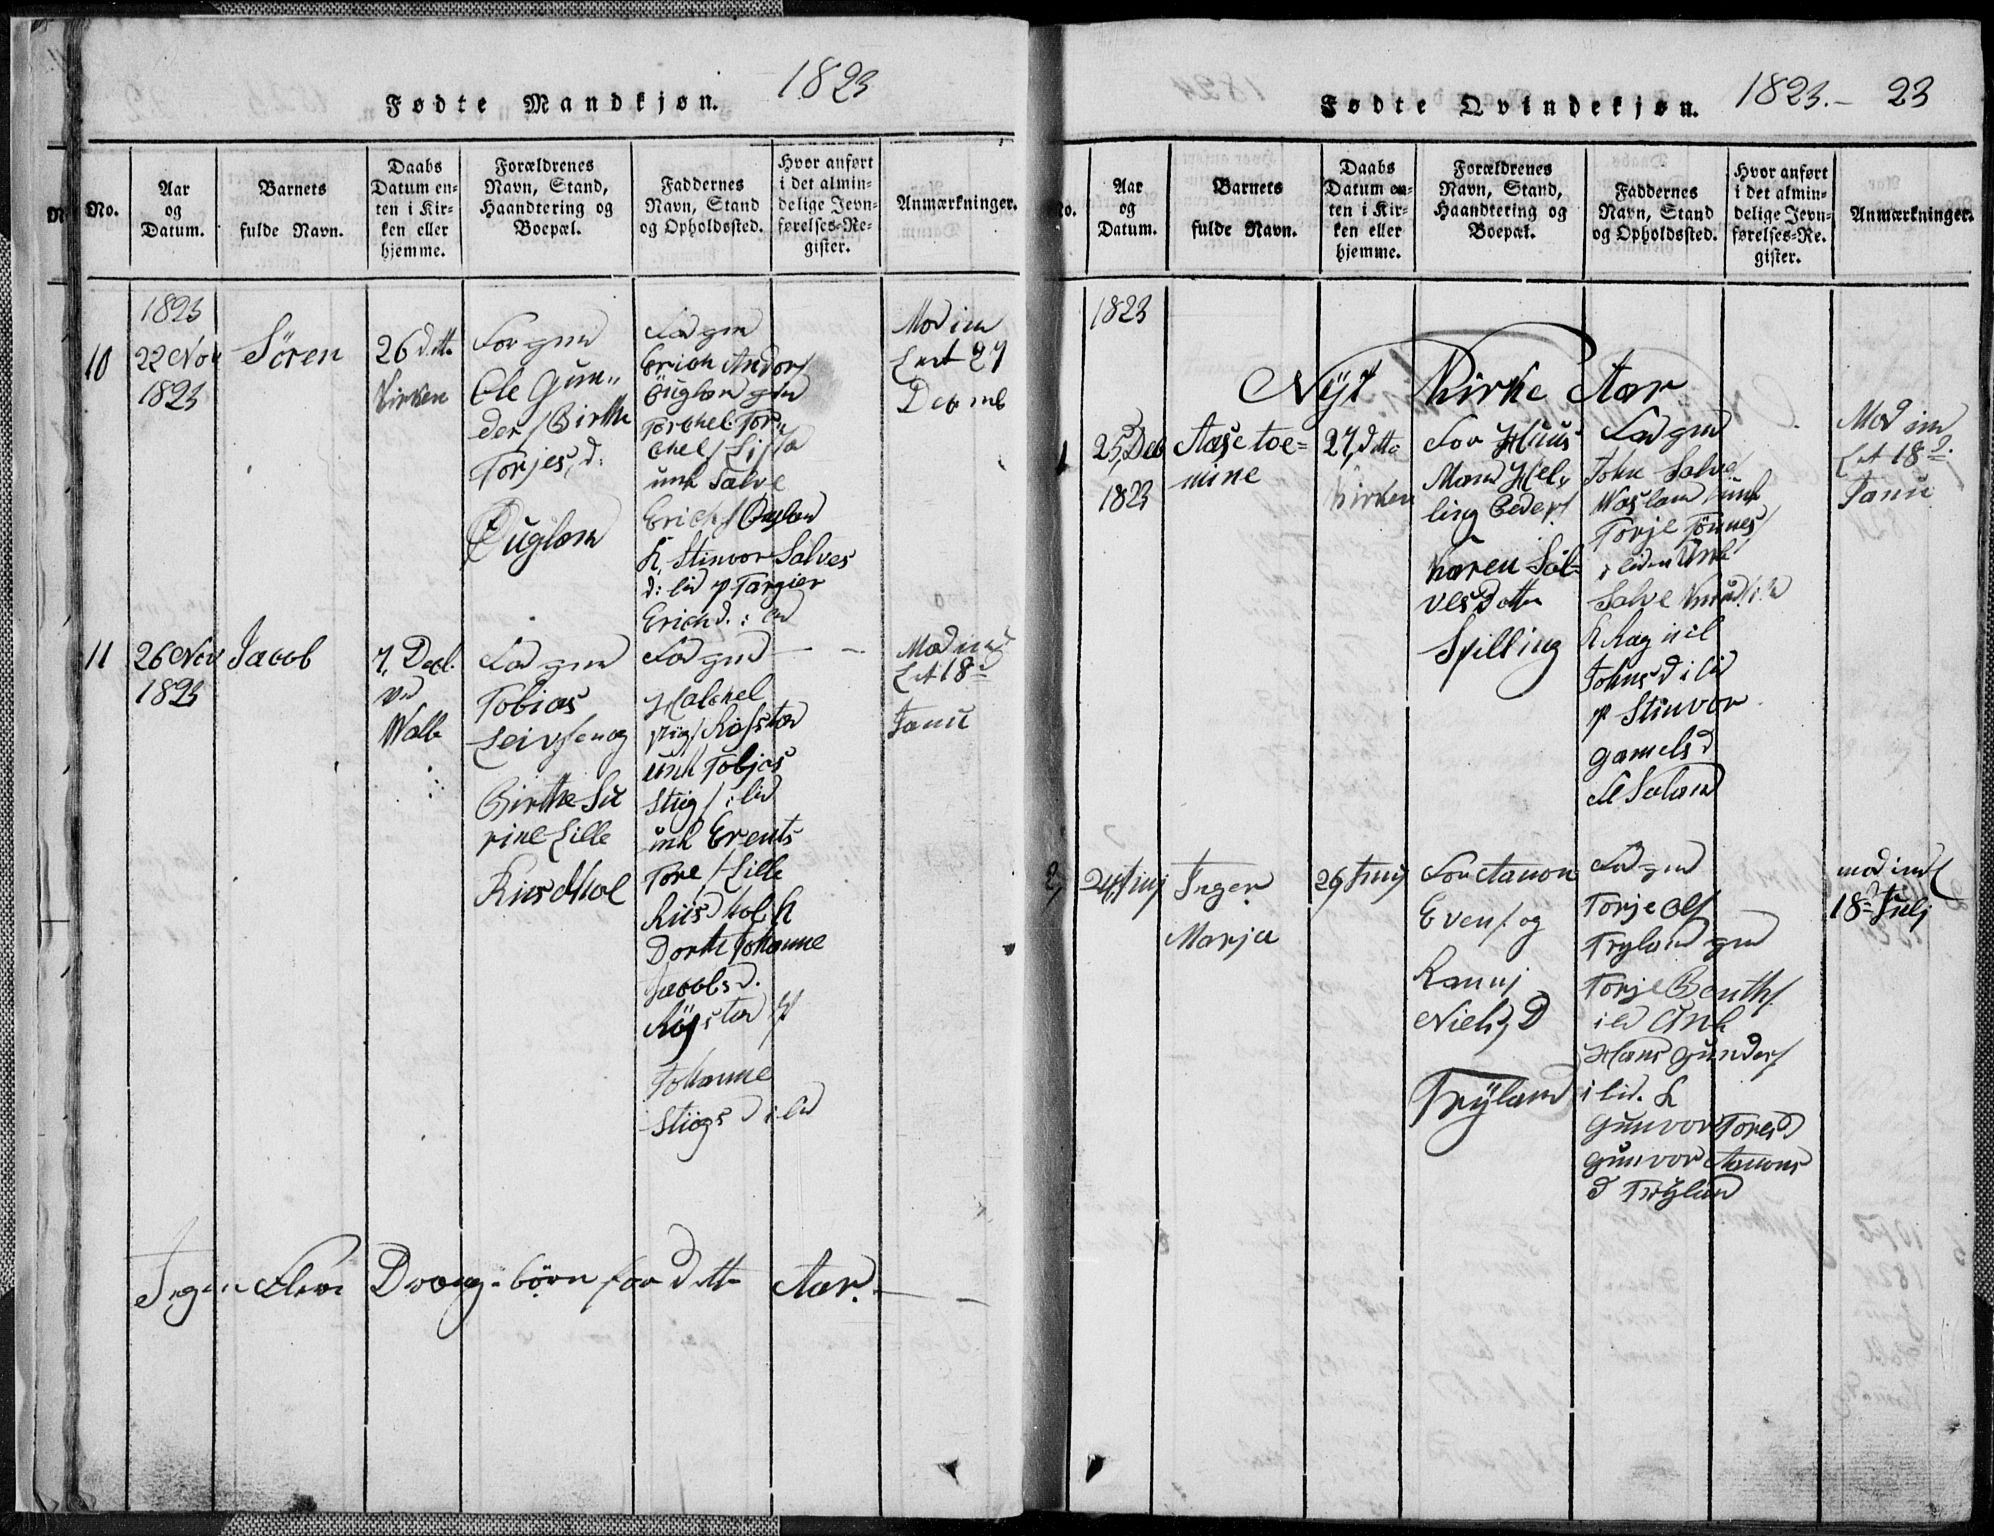 Fødte Mandkjøn. 1823
No.
Aar
og
Datum.
Barnets
fulde Navn.
Daabs
Datum en-
ten i Kir-
ken eller
hjemme.
Forældrenes
Navn, Stand,
Haandtering og
Boepæl.
Faddernes
Navn, Stand
og Opholdssted.
Hvor anført
i det almin-
delige Jevn-
førelses-Re-
gister.
Anmærkninger.
10
1823
22 Nov
1823
Sören
26 ditto
Kirken
For gmd
Ole Gun-
der / Birthe
Torjes d:
Øuglam
Fad gm
Erich Anders
Öugland gm
Torchel Tor
chel
unk Salve
Erich Ougland
K. Stinvor Salves
d: ibid p Targier
Erich d. i bd
Mod ind
Last 27
Decemb
11
26 Nov
1823
Jacob
7 Decb.
ved
Walle
Fad gmd
Tobias
Leivsen og
Birthe Se
rine Lille
Kiisdhol
Fad gmd
Halchel
Stig Røistad
unk Tobias
Stiig i bid
unk Erents
Tore / Lille
Kiisdhol K
Dorthe Johanne
Jacobs d.
Røystad p
Johanne
Stiigs d i bd
Mod ind
18
Janu
Ingen Flere Dreng-børn for dette Aar.
Fødte Qvindekjøn. 1823.- 23
No.
Aar
og
Datum.
Barnets
fulde Navn.
Daabs
Datum en-
ten i Kir-
ken eller
hjemme.
Forældrenes
Navn, Stand,
Haandtering og
Boepæl.
Faddernes
Navn, Stand
og Opholdssted.
Hvor anført
i det almin-
delige Jevn-
førelses-Re-
gister.
Anmærkninger.
1823
Nÿt Kirke Aar
1
25 Deb
1823
Aasetoe-
mine
27 ditto
Kirken
For Huus
Mand Hel-
ling Peders
Karen Sal-
vesdotter
Spilling
Fad gmd
John Salve
unk
Torje Tønnes
ibidem Unk
Salve Knuds
K Ragnil
Johns d i bid
p Stinvor
Gamels d
Mod ind
18
Janu
2
24 Junj
Inger
Marja
29 Junj
For Aanon
Evens og
Rannj
Niels D
Trÿland
Fad gmd
Torje Ols
Tryland gm
Torje Benth
i bd Unk
Hans Gunders
i bid. K
Gunvor Tores d
Gunvor Aanons
d Trÿland
mod ind
18 Julj